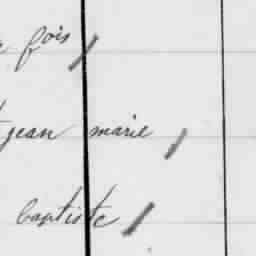 fois
jean marie
baptiste